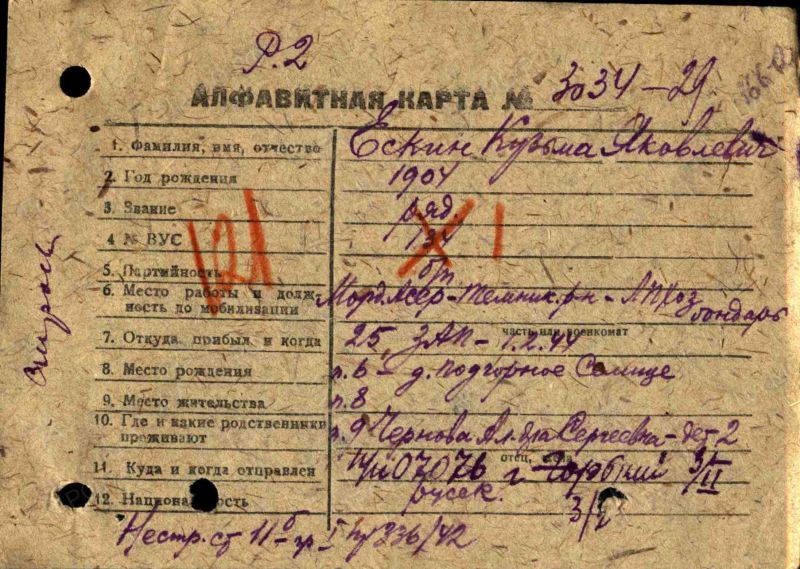 Р.2
АЛФАВИТНАЯ КАРТА № 3034-29
1. Фамилия, имя, отчество Ескин Кузьма Яковлевич
2. Год рождения 1904
3. Звание ряд.
4 № ВУС 134 1
121
5. Партийность б/п
6. Место работы и долж- Морд. Асср - Темник. рн -
ность до мобилизации бондарь
7. Откуда прибыл и когда 25 ЗАП - 1.2.44
часть или военкомат
8. Место рождения п.6 - д. Подгорное
9. Место жительства п.8
10. Где и какие родственники
проживают п.9 Чернова Ал-дра Сергеевна - дет 2
отец, жена
11. Куда и когда отправлен 07076 г. 3/II
12. Национальность русск.
Нестр. ст 11 б гр I пр 336/42